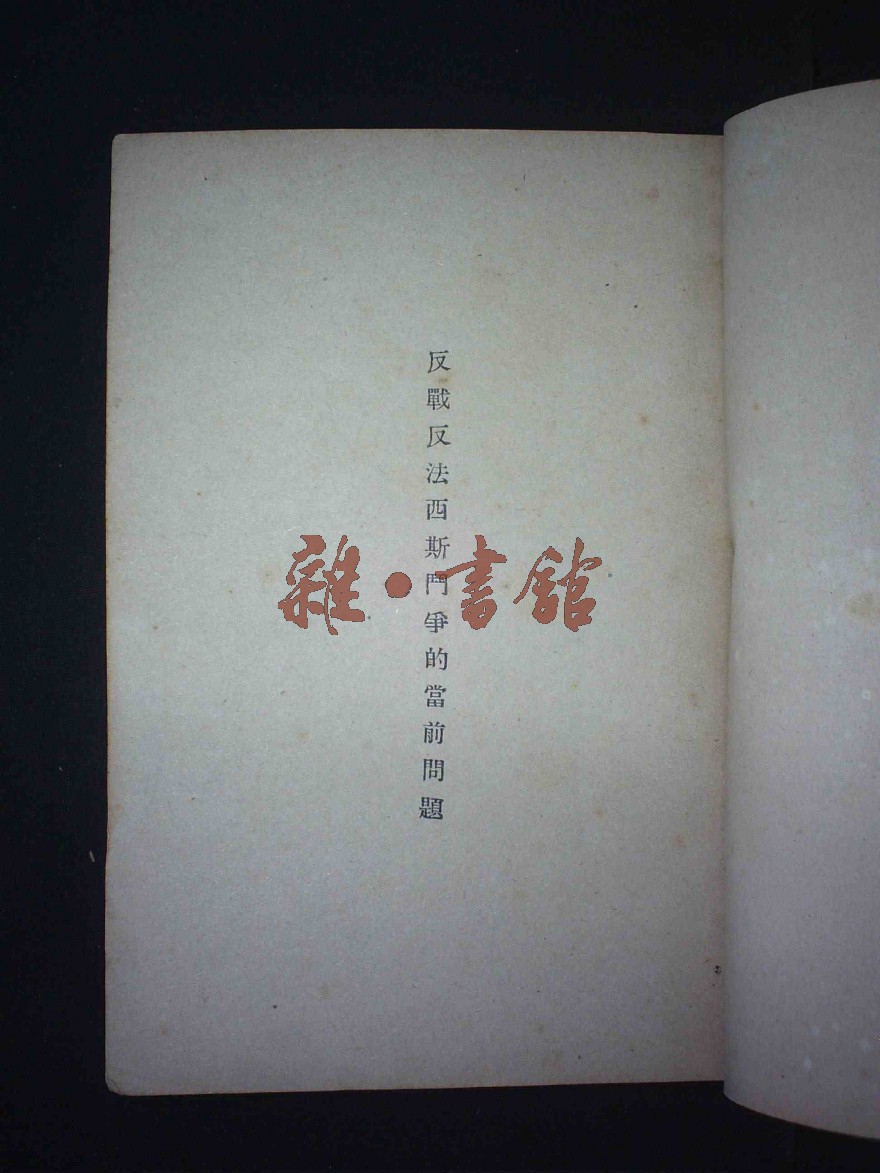 反戰反法西斯鬥爭的當前問題
雜·書館